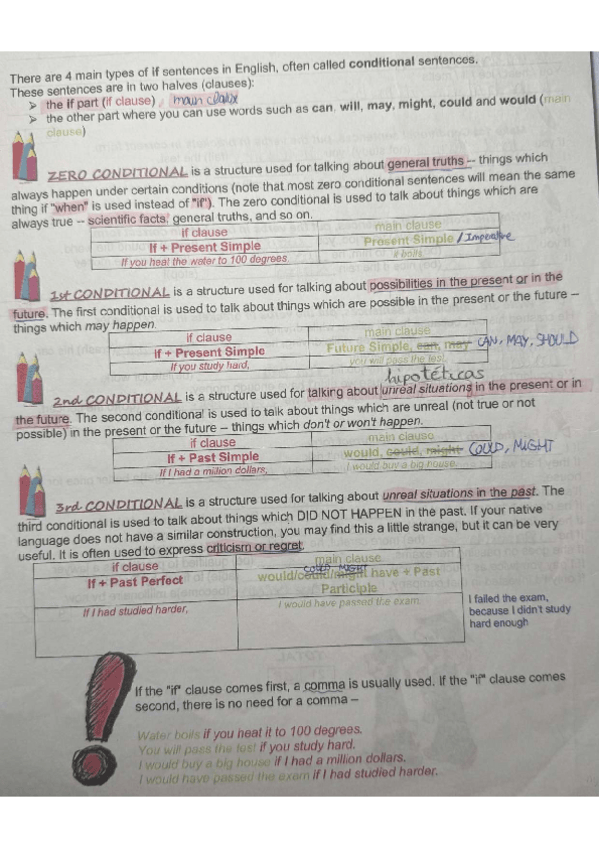 There are 4 main types of if sentences in English, often called conditional sentences.
These sentences are in two halves (clauses):
➢ the if part (if clause)
➢ the other part where you can use words such as can, will, may, might, could and would (main
clause)
ZERO CONDITIONAL is a structure used for talking about general truths -- things which
always happen under certain conditions (note that most zero conditional sentences will mean the same
thing if "when" is used instead of "if"). The zero conditional is used to talk about things which are
always true -- scientific facts, general truths, and so on.
if clause main clause
If + Present Simple Present Simple / Imperative
If you heat the water to 100 degrees, it boils
1st CONDITIONAL is a structure used for talking about possibilities in the present or in the
future. The first conditional is used to talk about things which are possible in the present or the future –
things which may happen.
if clause main clause
If + Present Simple Future Simple, can, may CAN, MAY, SHOULD
If you study hard, you will pass the test.
hipotéticas
2nd CONDITIONAL is a structure used for talking about unreal situations in the present or in
the future. The second conditional is used to talk about things which are unreal (not true or not
possible) in the present or the future – things which don't or won't happen.
if clause main clause
If + Past Simple would, could, might COULD, MIGHT
If I had a million dollars, I would buy a big house.
3rd CONDITIONAL is a structure used for talking about unreal situations in the past. The
third conditional is used to talk about things which DID NOT HAPPEN in the past. If your native
language does not have a similar construction, you may find this a little strange, but it can be very
useful. It is often used to express criticism or regret.
if clause main clause
COULD, MIGHT
If + Past Perfect would/could/might have + Past
Participle
If I had studied harder, I would have passed the exam.
I failed the exam,
because I didn't study
hard enough
If the "if" clause comes first, a comma is usually used. If the "if" clause comes
second, there is no need for a comma –
Water boils if you heat it to 100 degrees.
You will pass the test if you study hard.
I would buy a big house if I had a million dollars.
I would have passed the exam if I had studied harder.